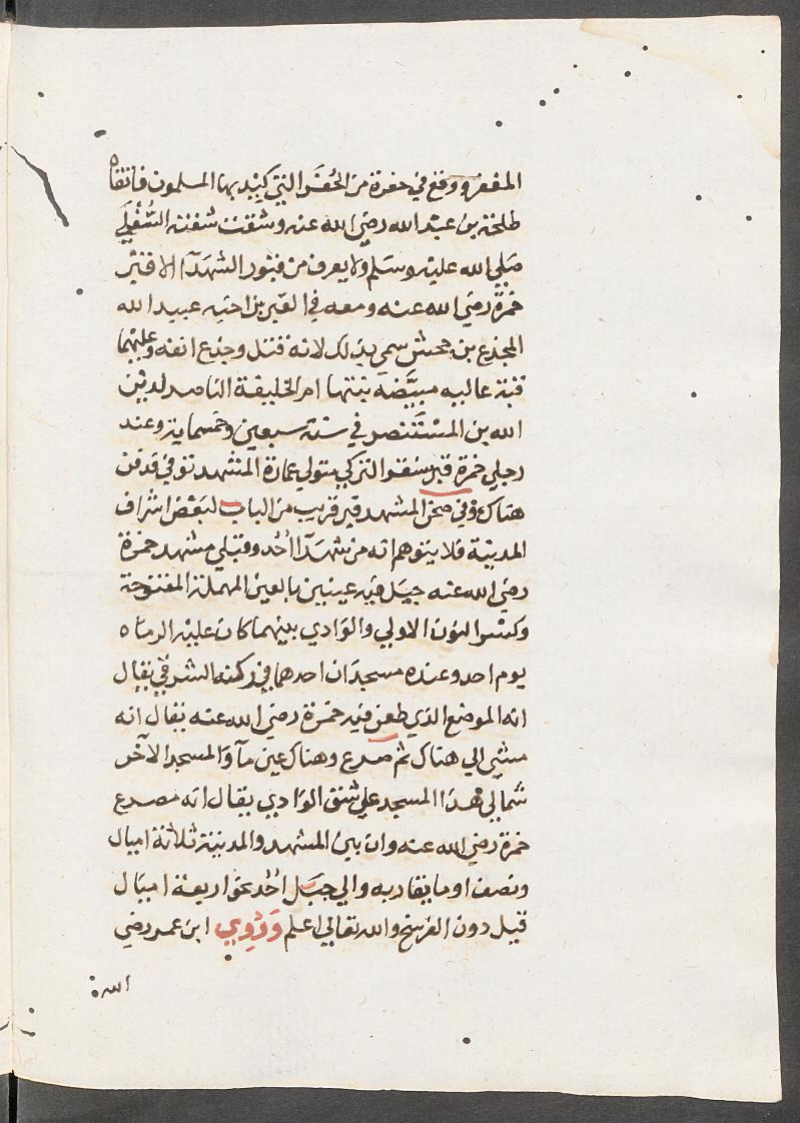 المغفر ووقع في حفرة من الحُفَر التي كيد بها المسلمون فانتقاه
طلحة بن عبد الله رضي الله عنه وشقت شفته السُّفْلَي
صَلي الله عليه وسَلم ولا يعرف من قبور الشهَدَآ الا قبْر
حمزة رضي الله عنه ومعه في القبر بن اخيه عبيد الله
المجذع بن جحش سمي بذلك لانه قتل وجذع انفه وعليهما
قبة عاليه مبيَّضة بنتها ام الخليفة الناصر لدين
الله بن المسْتَنصر في سنة سبعين وخمسماية وعند
رجلي حمزة قبر سنقر التركي متولي عمارة المشهد توفي فدفن
هناك وفي صحن المشهد قبر قريب من الباب لبَعْض اشراف
المدينة فلا يتوهم انه من شهَدَآ اُحُد وقبلي مشهد حمزة
رضي الله عنه جبَل فيه عينين بالعين المهملة المفتوحة
وكسر النون الاولي والوَادي بينهما كان عليه الرماه
يوم احد وعنده مسجدَان احدهما في ركنه الشرقي يقال
انه الموضع الذي طعن فيه حمزة رضي الله عنه يقال انه
مشي الي هناك ثم صرع وهناك عين مآ وَالمسجد الآخر
شمالي هذا المسجد علي شق الوَادي يقال انه مصرع
حمزة رضي الله عنه وان بين المشهد والمدينة ثلاثة اميال
ونصف او ما يقاربه والي جبَل اُحُد نحو اربعة اميَال
قيل دون الفرسخ والله تعالي اعلم وَرُوِي ابن عمر رضي
الله